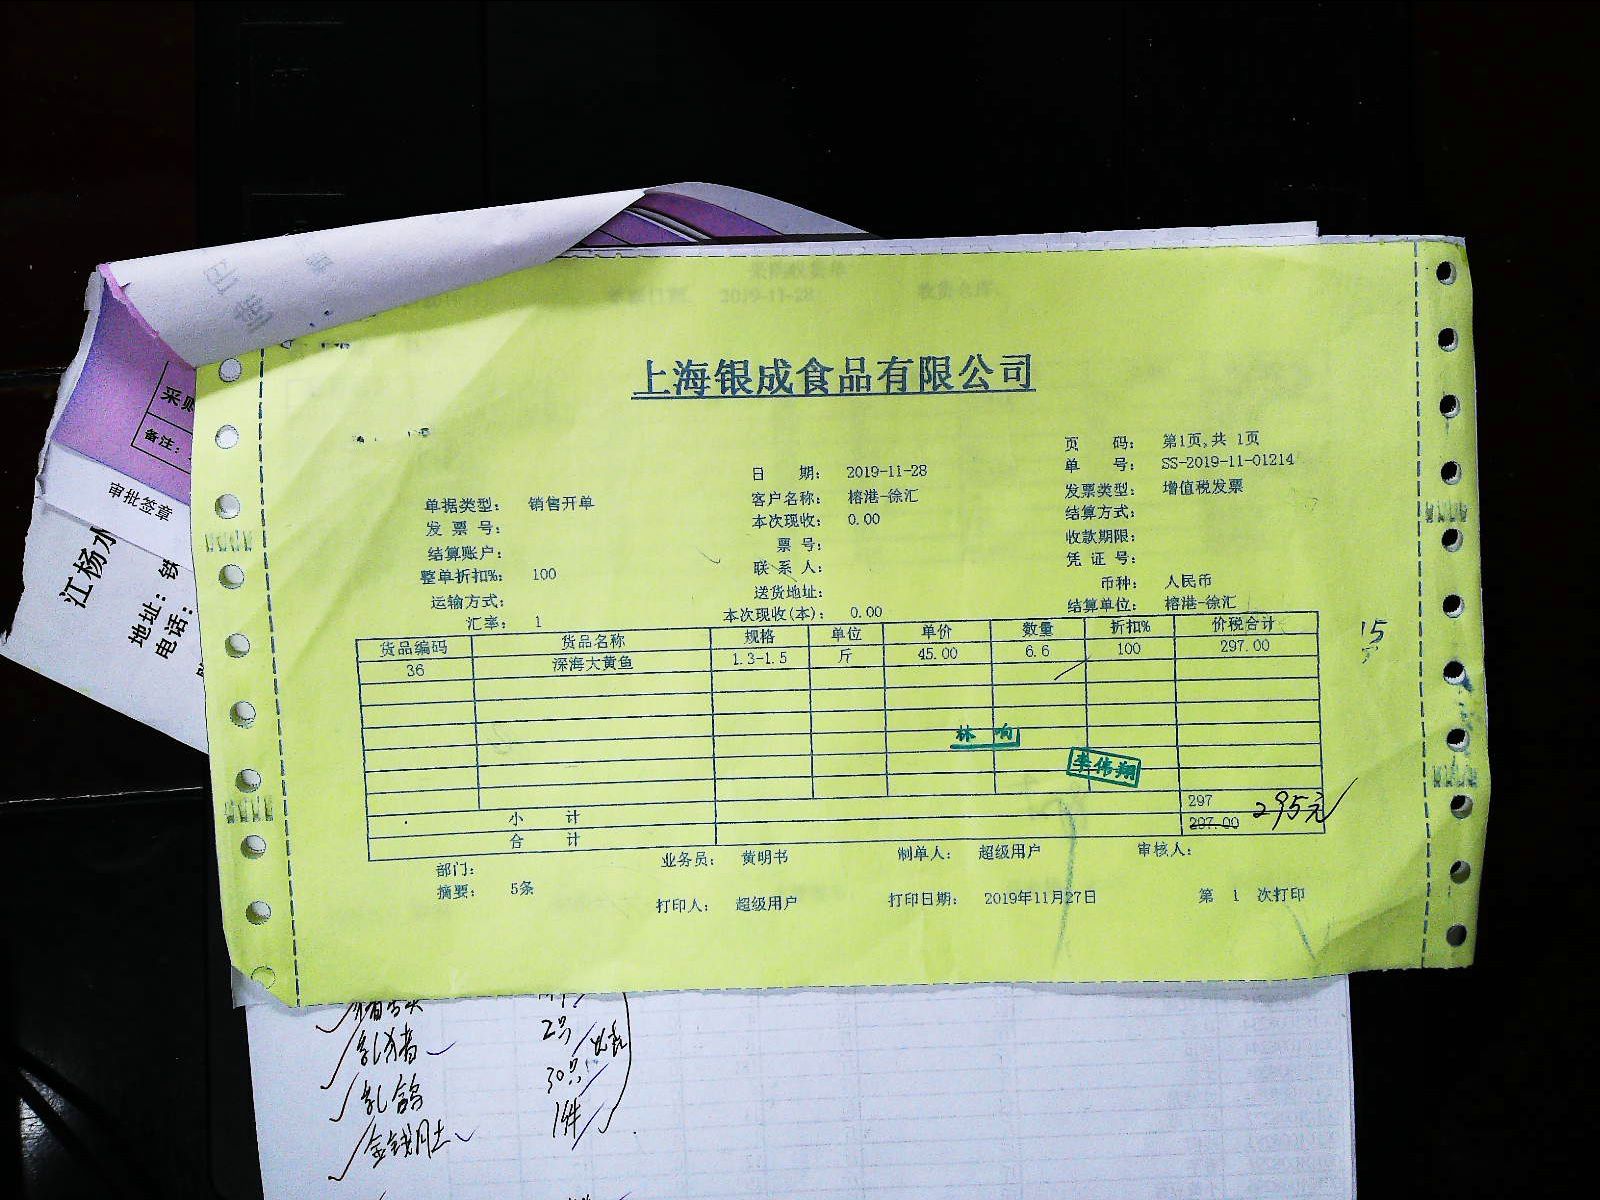 上海银成食品有限公司
页 码： 第1页,共 1页
日 期： 2019-11-28 单 号： SS-2019-11-01214
单据类型： 销售开单 客户名称： 榕港-徐汇 发票类型： 增值税发票
发 票 号： 本次现收： 0.00 结算方式：
结算账户： 票 号： 收款期限：
整单折扣%： 100 联系人： 凭 证 号：
运输方式： 送货地址： 币种： 人民币
汇率： 1 本次现收(本)： 0.00 结算单位： 榕港-徐汇
货品编码 货品名称 规格 单位 单价 数量 折扣% 价税合计
36 深海大黄鱼 1.3-1.5 斤 45.00 6.6 100 297.00
林 响
李伟翔
小 计 297
合 计 297.00 295元
部门： 业务员： 黄明书 制单人： 超级用户 审核人：
摘要： 5条
打印人： 超级用户 打印日期： 2019年11月27日 第 1 次打印
15
采购
备注：
审批签章
江杨水
地址：铁
电话：
乳猪 2只
乳鸽 30只
金钱肚 1件